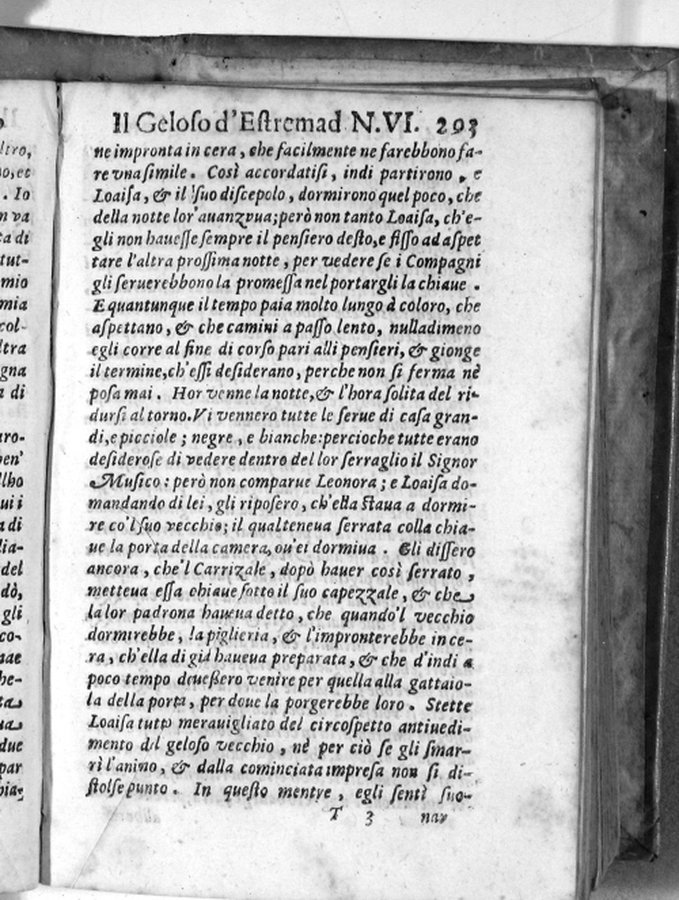 Il Geloso d'Estremad N.VI. 293
ne impronta in cera, che facilmente ne farebbono fa-
re vna simile. Così accordatisi, indi partirono, e
Loaisa, & il suo discepolo, dormirono quel poco, che
della notte lor' auanzaua; però non tanto Loaisa, ch'e-
gli non hauesse sempre il pensiero desto, e fisso ad aspet
tare l'altra prossima notte, per vedere se i Compagni
gli seruerebbono la promessa nel portargli la chiaue.
E quantunque il tempo paia molto lungo à coloro, che
aspettano, & che camini a passo lento, nulladimeno
egli corre al fine di corso pari alli pensieri, & gionge
il termine, ch'essi desiderano, perche non si ferma nè
posa mai. Hor venne la notte, & l'hora solita del ri-
dursi al torno. Vi vennero tutte le serue di casa gran-
di, e picciole; negre, e bianche: percioche tutte erano
desiderose di vedere dentro del lor serraglio il Signor
Musico: però non comparue Leonora; e Loaisa do-
mandando di lei, gli riposero, ch'ella staua a dormi-
re co'l suo vecchio; il qual teneua serrata colla chia-
ue la porta della camera, ou'ei dormiua. Gli dissero
ancora, che'l Carrizale, dopò hauer così serrato,
metteua essa chiaue sotto il suo capezzale, & che
la lor padrona haueua detto, che quando'l vecchio
dormirebbe, la piglieria, & l'impronterebbe in ce-
ra, ch'ella di già haueua preparata, & che d'indi a
poco tempo doueßero venire per quella alla gattaio-
la della porta, per doue la porgerebbe loro. Stette
Loaisa tutto merauigliato del circospetto antiuedi-
mento del geloso vecchio, nè per ciò se gli smar-
rì l'animo, & dalla cominciata impresa non si di-
stolse punto. In questo mentre, egli sentì suo-
T 3 nar